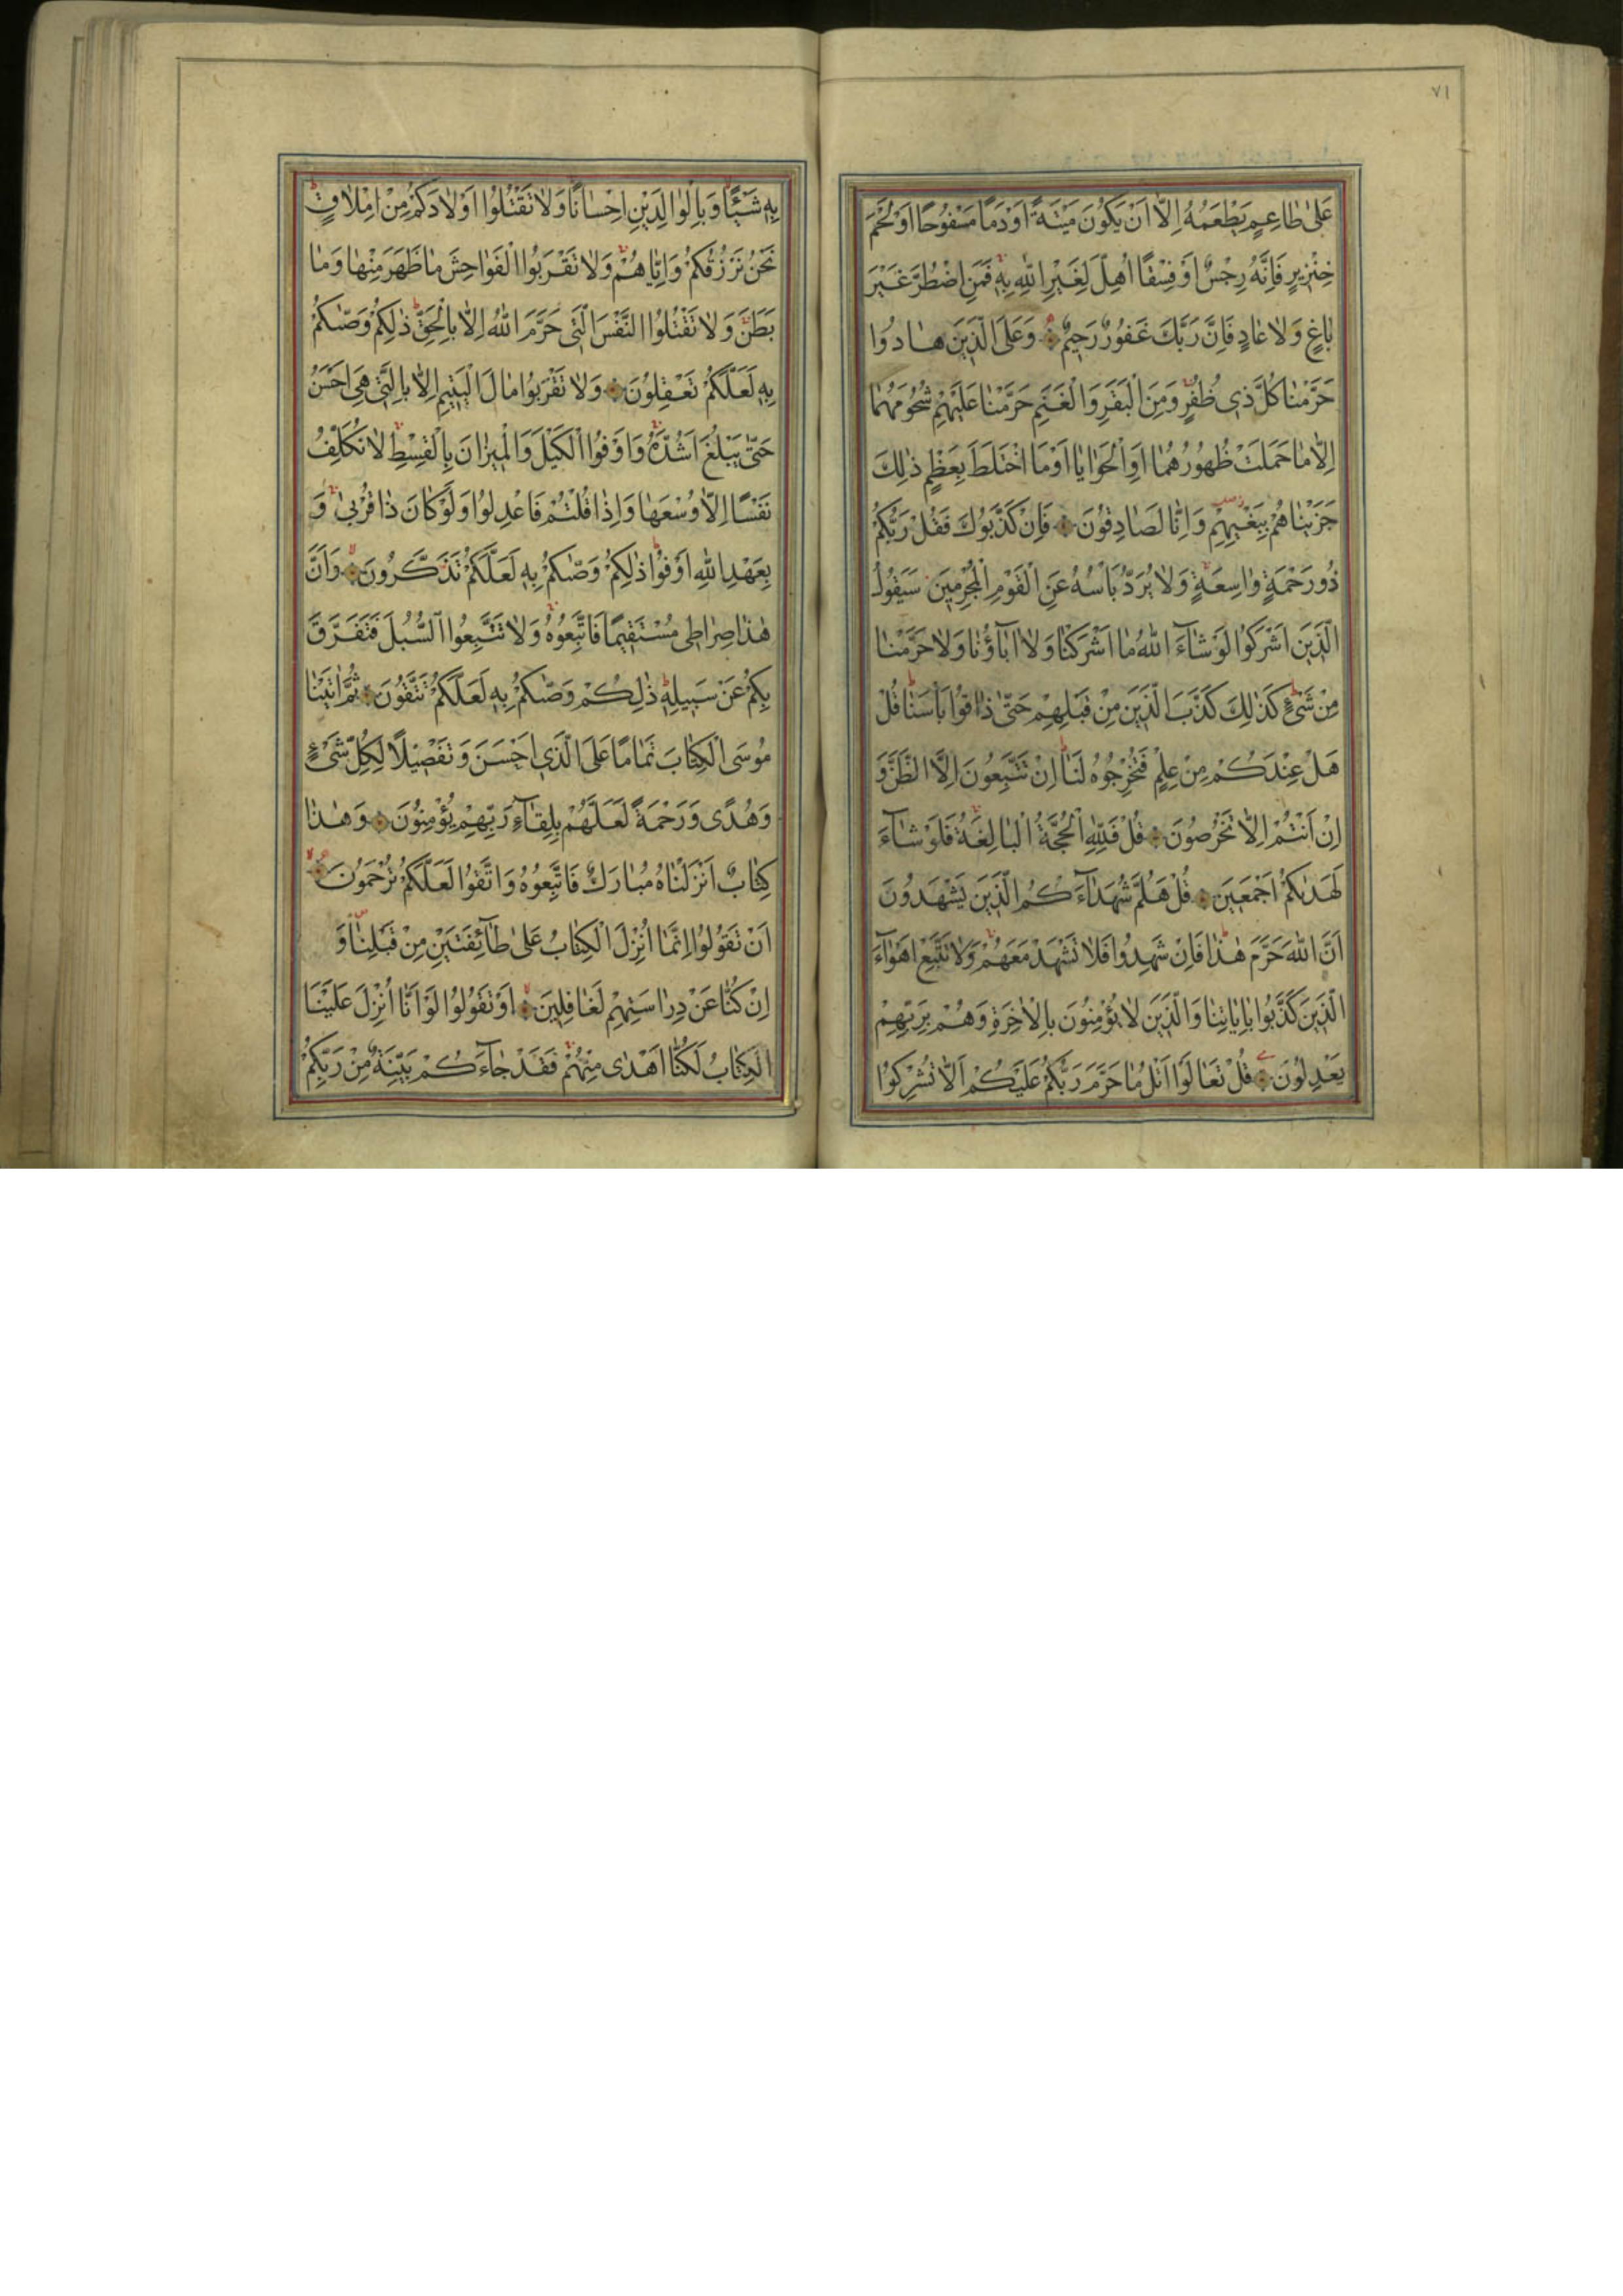 ٧١
عَلىٰ طٰاعِمٍ يَطْعَمُهُ اِلّٰا اَنْ يَكُونَ مَيْتَةً اَوْ دَمًا مَسْفُوحًا اَوْ لَحْمَ
خِنْزِيرٍ فَاِنَّهُ رِجْسٌ اَوْ فِسْقًا اُهِلَّ لِغَيْرِ اللّٰهِ بِهِ فَمَنِ اضْطُرَّ غَيْرَ
بٰاغٍ وَلٰا عٰادٍ فَاِنَّ رَبَّكَ غَفُورٌ رَحِيمٌ وَعَلَى الَّذِينَ هٰادُوا
حَرَّمْنٰا كُلَّ ذِى ظُفُرٍ وَمِنَ الْبَقَرِ وَالْغَنَمِ حَرَّمْنٰا عَلَيْهِمْ شُحُومَهُمٰا
اِلّٰا مٰا حَمَلَتْ ظُهُورُهُمٰا اَوِ الْحَوٰايٰا اَوْ مَا اخْتَلَطَ بِعَظْمٍ ذٰلِكَ
جَزَيْنٰاهُمْ بِبَغْيِهِمْ وَاِنّٰا لَصٰادِقُونَ فَاِنْ كَذَّبُوكَ فَقُلْ رَبُّكُمْ
ذُو رَحْمَةٍ وٰاسِعَةٍ وَلٰا يُرَدُّ بَأْسُهُ عَنِ الْقَوْمِ الْمُجْرِمِينَ سَيَقُولُ
الَّذِينَ اَشْرَكُوا لَوْ شٰاءَ اللّٰهُ مٰا اَشْرَكْنٰا وَلٰا اٰبٰاؤُنٰا وَلٰا حَرَّمْنٰا
مِنْ شَىْءٍ كَذٰلِكَ كَذَّبَ الَّذِينَ مِنْ قَبْلِهِمْ حَتّٰى ذٰاقُوا بَأْسَنٰا قُلْ
هَلْ عِنْدَكُمْ مِنْ عِلْمٍ فَتُخْرِجُوهُ لَنٰا اِنْ تَتَّبِعُونَ اِلَّا الظَّنَّ وَ
اِنْ اَنْتُمْ اِلّٰا تَخْرُصُونَ قُلْ فَلِلّٰهِ الْحُجَّةُ الْبٰالِغَةُ فَلَوْ شٰاءَ
لَهَدٰىكُمْ اَجْمَعِينَ قُلْ هَلُمَّ شُهَدٰاءَكُمُ الَّذِينَ يَشْهَدُونَ
اَنَّ اللّٰهَ حَرَّمَ هٰذٰا فَاِنْ شَهِدُوا فَلٰا تَشْهَدْ مَعَهُمْ وَلٰا تَتَّبِعْ اَهْوٰاءَ
الَّذِينَ كَذَّبُوا بِاٰيٰاتِنٰا وَالَّذِينَ لٰا يُؤْمِنُونَ بِالْاٰخِرَةِ وَهُمْ بِرَبِّهِمْ
يَعْدِلُونَ قُلْ تَعٰالَوْا اَتْلُ مٰا حَرَّمَ رَبُّكُمْ عَلَيْكُمْ اَلّٰا تُشْرِكُوا
بِهِ شَيْئًا وَبِالْوٰالِدَيْنِ اِحْسٰانًا وَلٰا تَقْتُلُوا اَوْلٰادَكُمْ مِنْ اِمْلٰاقٍ
نَحْنُ نَرْزُقُكُمْ وَاِيّٰاهُمْ وَلٰا تَقْرَبُوا الْفَوٰاحِشَ مٰا ظَهَرَ مِنْهٰا وَمٰا
بَطَنَ وَلٰا تَقْتُلُوا النَّفْسَ الَّتِى حَرَّمَ اللّٰهُ اِلّٰا بِالْحَقِّ ذٰلِكُمْ وَصّٰىكُمْ
بِهِ لَعَلَّكُمْ تَعْقِلُونَ وَلٰا تَقْرَبُوا مٰالَ الْيَتِيمِ اِلّٰا بِالَّتِى هِىَ اَحْسَنُ
حَتّٰى يَبْلُغَ اَشُدَّهُ وَاَوْفُوا الْكَيْلَ وَالْمِيزٰانَ بِالْقِسْطِ لٰا نُكَلِّفُ
نَفْسًا اِلّٰا وُسْعَهٰا وَاِذٰا قُلْتُمْ فَاعْدِلُوا وَلَوْ كٰانَ ذٰا قُرْبىٰ وَ
بِعَهْدِ اللّٰهِ اَوْفُوا ذٰلِكُمْ وَصّٰىكُمْ بِهِ لَعَلَّكُمْ تَذَكَّرُونَ وَاَنَّ
هٰذٰا صِرٰاطِى مُسْتَقِيمًا فَاتَّبِعُوهُ وَلٰا تَتَّبِعُوا السُّبُلَ فَتَفَرَّقَ
بِكُمْ عَنْ سَبِيلِهِ ذٰلِكُمْ وَصّٰىكُمْ بِهِ لَعَلَّكُمْ تَتَّقُونَ ثُمَّ اٰتَيْنٰا
مُوسَى الْكِتٰابَ تَمٰامًا عَلَى الَّذِى اَحْسَنَ وَتَفْصِيلًا لِكُلِّ شَىْءٍ
وَهُدًى وَرَحْمَةً لَعَلَّهُمْ بِلِقٰاءِ رَبِّهِمْ يُؤْمِنُونَ وَهٰذٰا
كِتٰابٌ اَنْزَلْنٰاهُ مُبٰارَكٌ فَاتَّبِعُوهُ وَاتَّقُوا لَعَلَّكُمْ تُرْحَمُونَ
اَنْ تَقُولُوا اِنَّمٰا اُنْزِلَ الْكِتٰابُ عَلىٰ طٰائِفَتَيْنِ مِنْ قَبْلِنٰا وَ
اِنْ كُنّٰا عَنْ دِرٰاسَتِهِمْ لَغٰافِلِينَ اَوْ تَقُولُوا لَوْ اَنّٰا اُنْزِلَ عَلَيْنَا
الْكِتٰابُ لَكُنّٰا اَهْدٰى مِنْهُمْ فَقَدْ جٰاءَكُمْ بَيِّنَةٌ مِنْ رَبِّكُمْ